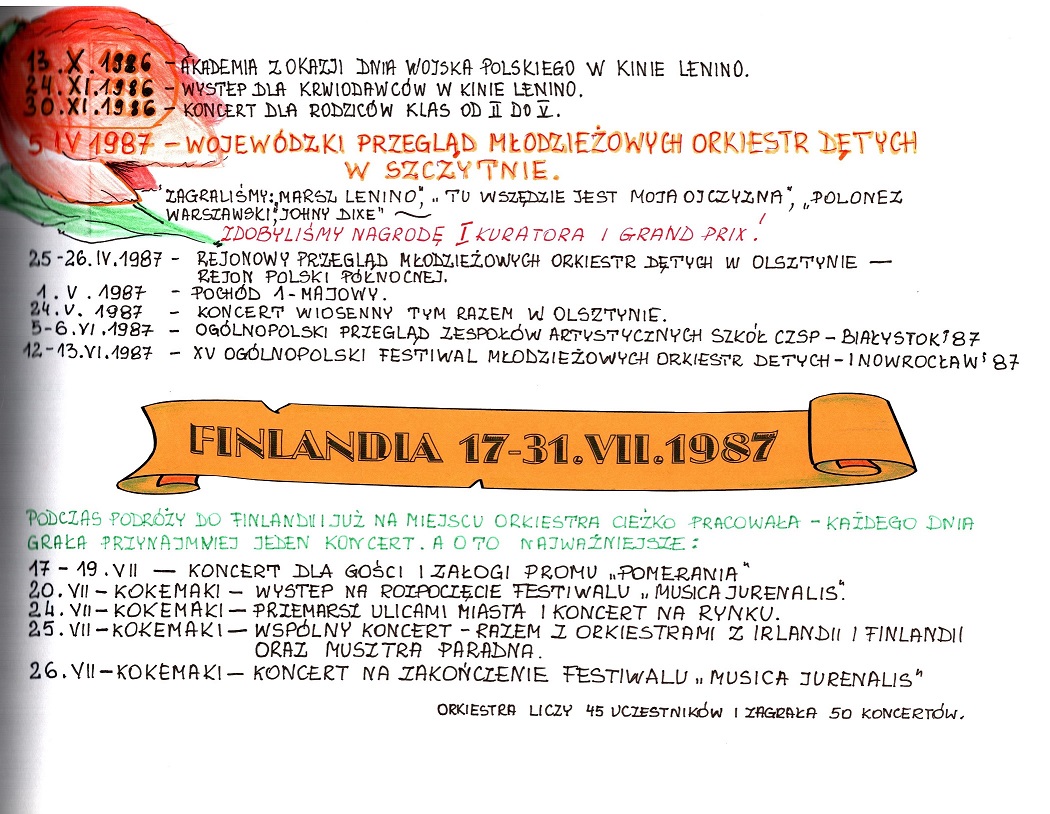 13.X.1986 - AKADEMIA Z OKAZJI DNIA WOJSKA POLSKIEGO W KINIE LENINO.
24.XI.1986 - WYSTĘP DLA KRWIODAWCÓW W KINIE LENINO.
30.XI.1986 - KONCERT DLA RODZICÓW KLAS OD II DO V.
5 IV 1987 - WOJEWÓDZKI PRZEGLĄD MŁODZIEŻOWYCH ORKIESTR DĘTYCH
W SZCZYTNIE.
ZAGRALIŚMY: „MARSZ LENINO”, „TU WSZĘDZIE JEST MOJA OJCZYZNA”, „POLONEZ
WARSZAWSKI”, „JOHNY DIXE” ~
ZDOBYLIŚMY NAGRODĘ I KURATORA I GRAND PRIX!
25-26.IV.1987 - REJONOWY PRZEGLĄD MŁODZIEŻOWYCH ORKIESTR DĘTYCH W OLSZTYNIE —
REJON POLSKI PÓŁNOCNEJ.
1.V.1987 - POCHÓD 1-MAJOWY.
24.V.1987 - KONCERT WIOSENNY TYM RAZEM W OLSZTYNIE.
5-6.VI.1987 - OGÓLNOPOLSKI PRZEGLĄD ZESPOŁÓW ARTYSTYCZNYCH SZKÓŁ CZSP - BIAŁYSTOK'87
12-13.VI.1987 - XV OGÓLNOPOLSKI FESTIWAL MŁODZIEŻOWYCH ORKIESTR DĘTYCH - INOWROCŁAW'87
FINLANDIA 17-31.VII.1987
PODCZAS PODRÓŻY DO FINLANDII I JUŻ NA MIEJSCU ORKIESTRA CIĘŻKO PRACOWAŁA - KAŻDEGO DNIA
GRAŁA PRZYNAJMNIEJ JEDEN KONCERT. A OTO NAJWAŻNIEJSZE:
17 - 19.VII — KONCERT DLA GOŚCI I ZAŁOGI PROMU „POMERANIA”
20.VII - KOKEMAKI - WYSTĘP NA ROZPOCZĘCIE FESTIWALU „MUSICA JURENALIS”.
24.VII - KOKEMAKI - PRZEMARSZ ULICAMI MIASTA I KONCERT NA RYNKU.
25.VII - KOKEMAKI - WSPÓLNY KONCERT - RAZEM Z ORKIESTRAMI Z IRLANDII I FINLANDII
ORAZ MUSZTRA PARADNA.
26.VII - KOKEMAKI - KONCERT NA ZAKOŃCZENIE FESTIWALU „MUSICA JURENALIS”
ORKIESTRA LICZY 45 UCZESTNIKÓW I ZAGRAŁA 50 KONCERTÓW.